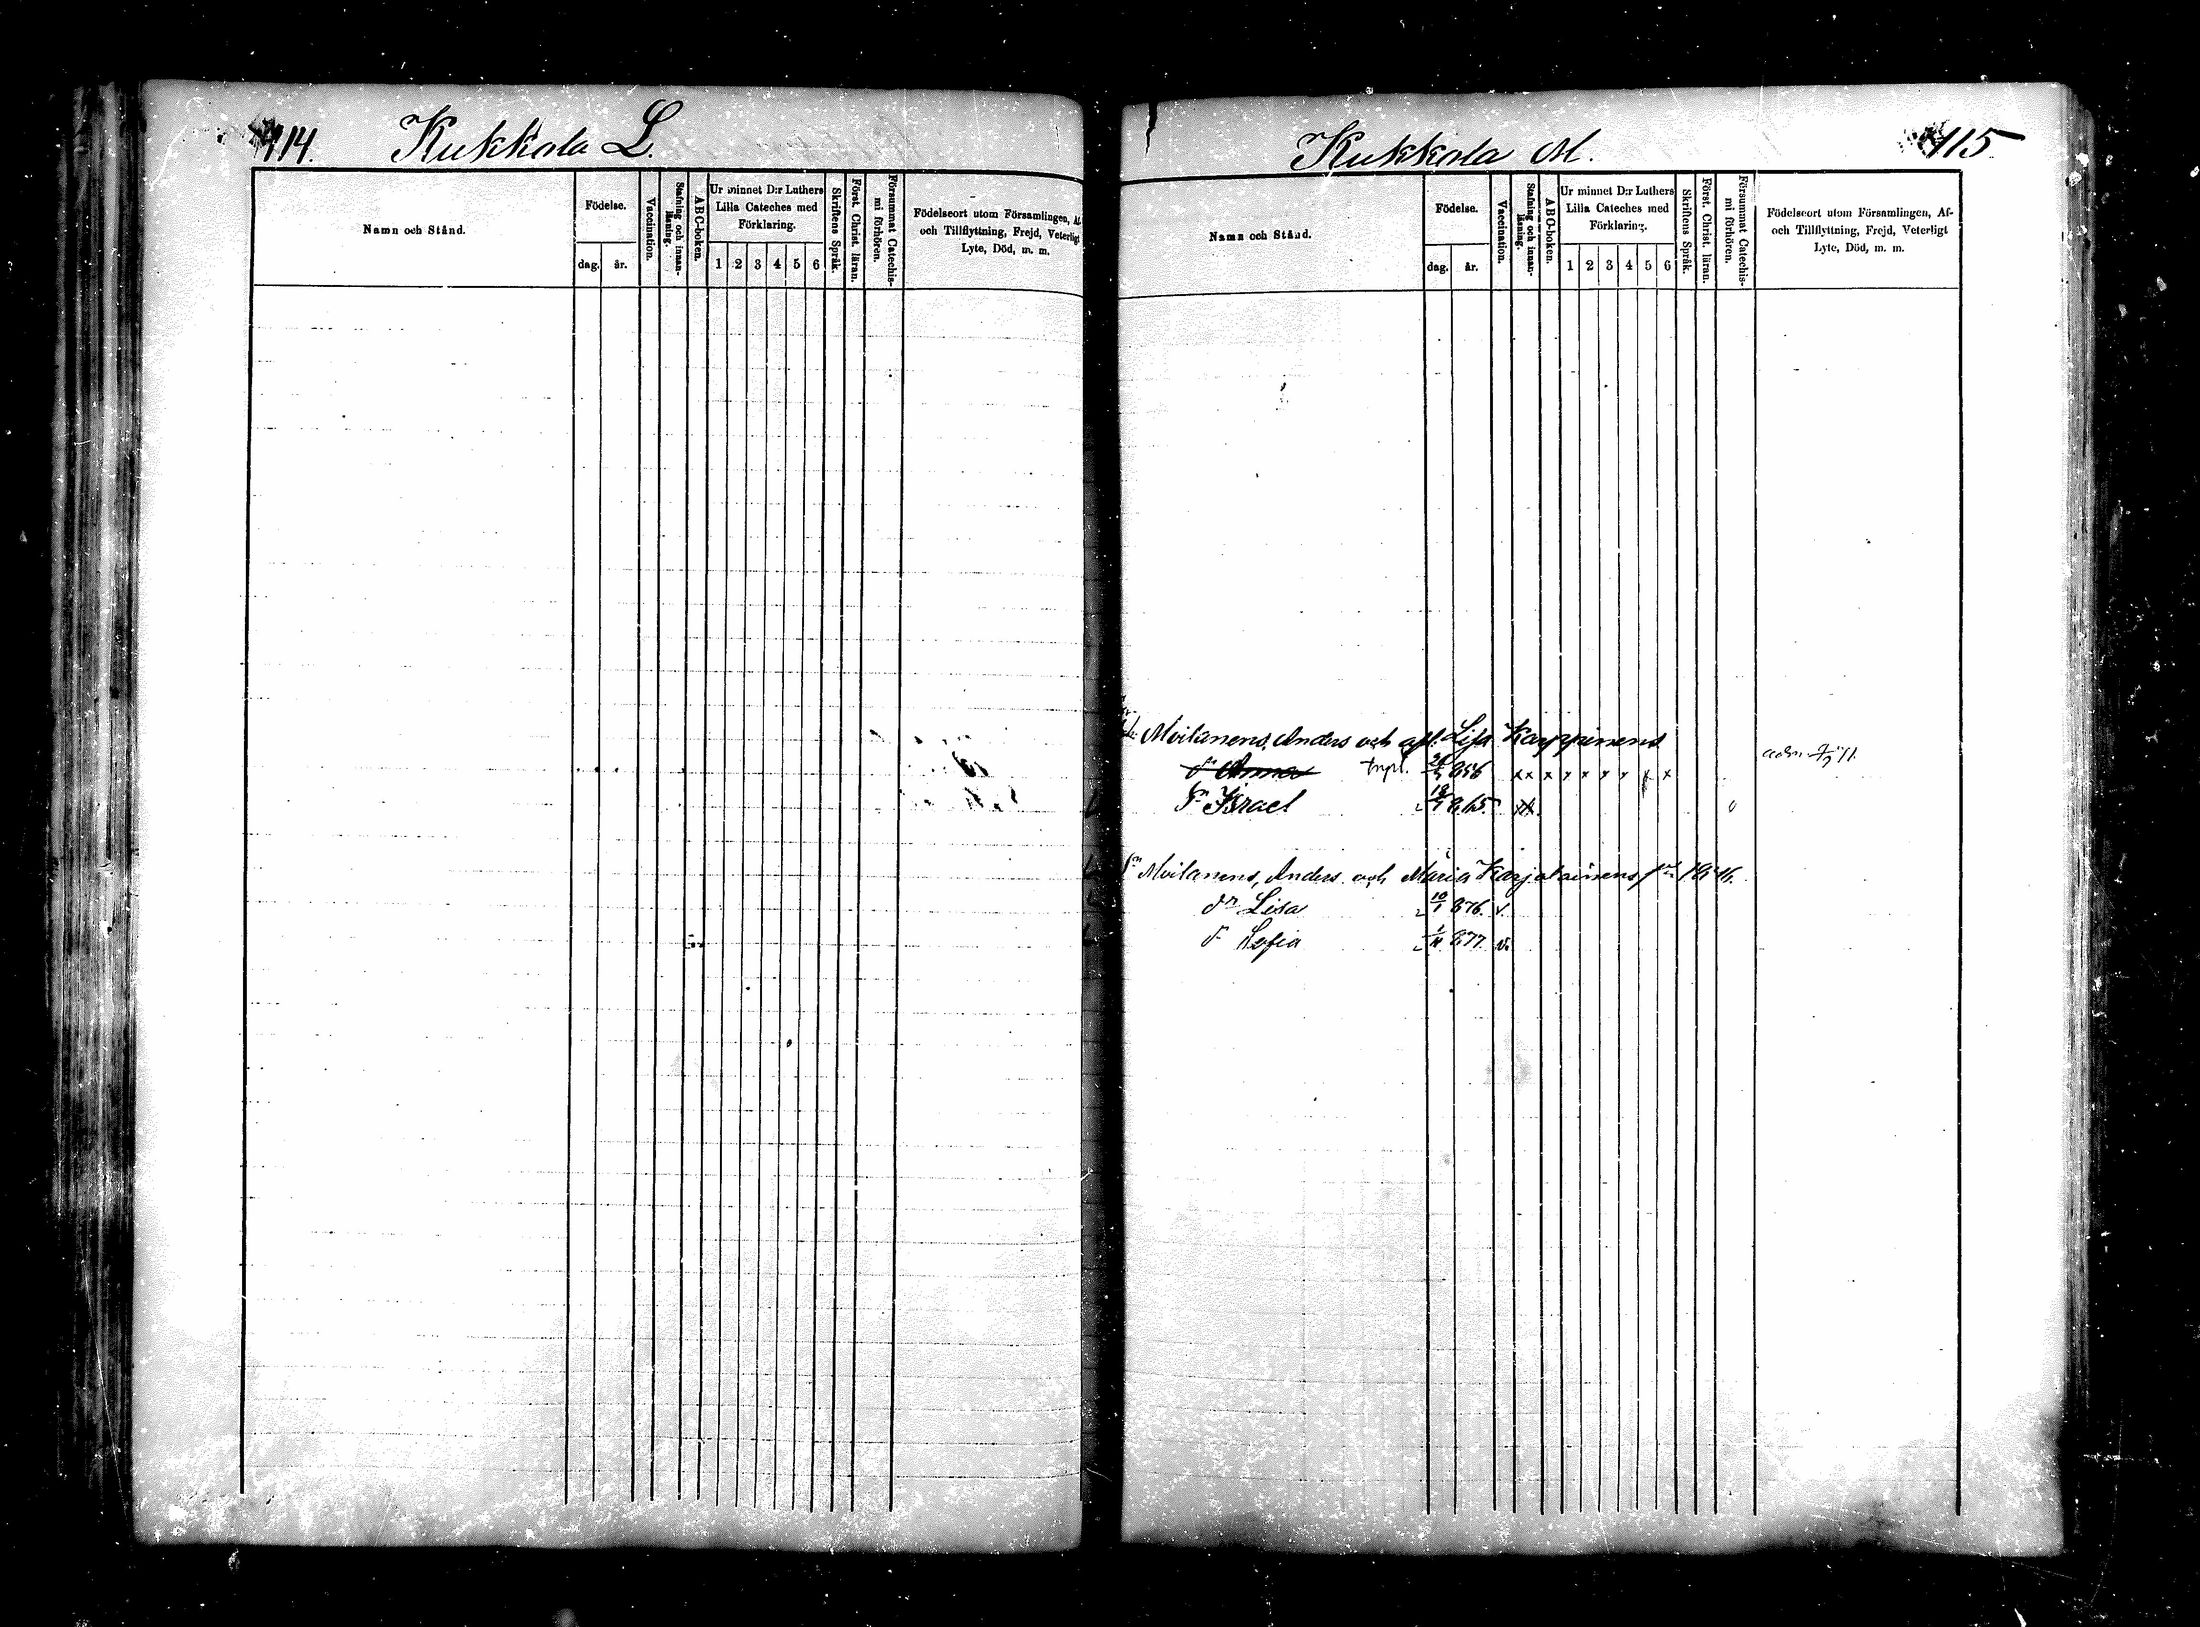 114. Kukkola L.
Namn och Stånd.
Födelse.
dag. år.
Vaccination.
Stafning och innan-läsning.
ABC-boken.
Ur minnet D:r Luthers
Lilla Cateches med
Förklaring.
1 2 3 4 5 6
Skriftens Språk.
Förest. Christ. läran.
Försummat Catechis-
mi förhören.
Födelseort utom Församlingen, Af-
och Tillflyttning, Frejd, Veterligt
Lyte, Död, m. m.
Kukkola M. 115
Namn och Stånd.
Födelse.
dag. år.
Vaccination.
Stafning och innan-läsning.
ABC-boken.
Ur minnet D:r Luthers
Lilla Cateches med
Förklaring.
1 2 3 4 5 6
Skriftens Språk.
Förest. Christ. läran.
Försummat Catechis-
mi förhören.
Födelseort utom Församlingen, Af-
och Tillflyttning, Frejd, Veterligt
Lyte, Död, m. m.
Moilanens, Anders och Lisa Karppinens
dr Anna 856 x x x x x x x x x
Sn Israel 865.
Sn Moilanens, Anders och Maria Karjalainens
dr Lisa 10/1 876. v.
dr Sofia 877 v.